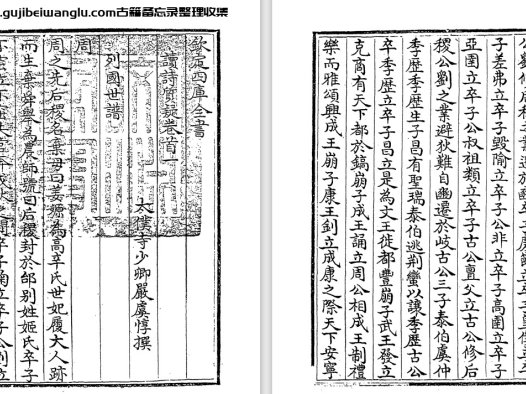 .gujibeiwanglu.com古籍备忘录整理收集
欽定四庫全書
讀詩質疑卷首一
太僕寺少卿嚴虞惇撰
列國世譜
周
周之先后稷名棄母曰姜嫄為高辛氏世妃履大人跡
而生棄舜舉為農師號曰后稷封於邰别姓姬氏卒子
子差弗立卒子毀隃立卒子公非立卒子高圉立卒子
亞圉立卒子公叔祖類立卒子古公亶父立古公修后
稷公劉之業避狄難自豳遷於岐古公三子泰伯虞仲
季歷季歷生子昌有聖瑞泰伯逃荆蠻以讓季歷古公
卒季歷立卒子昌立是為文王徙都豐崩子武王發立
克商有天下都於鎬崩子成王誦立周公相成王制禮
樂而雅頌興成王崩子康王釗立成康之際天下安寧